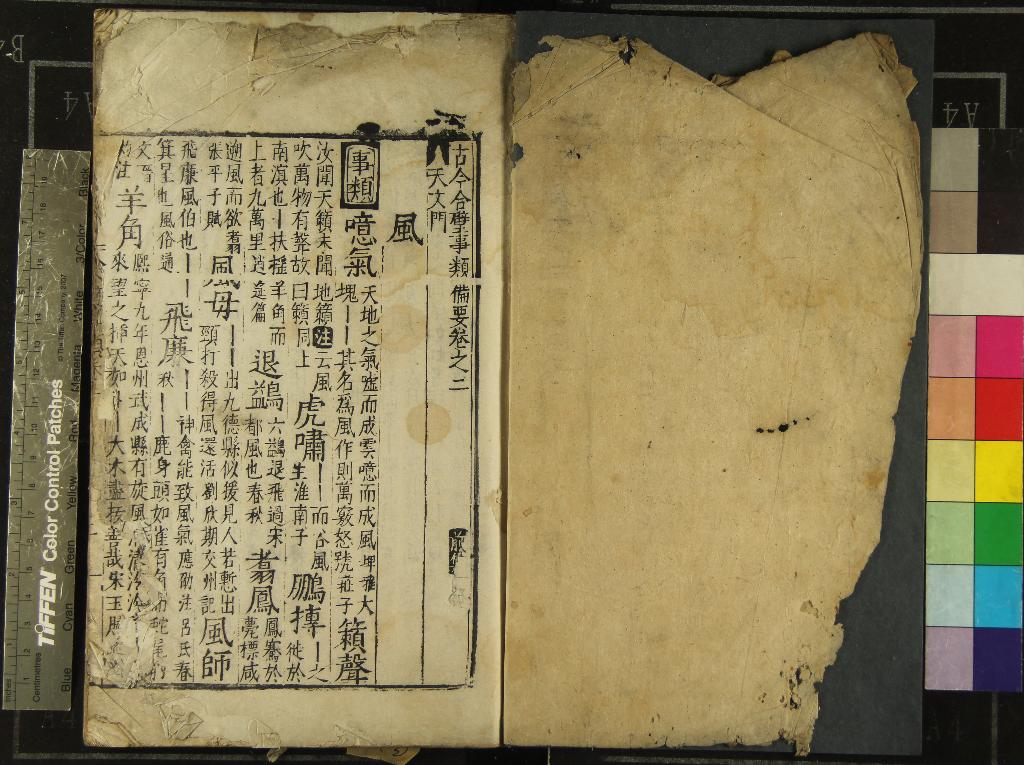 古今合璧事類備要卷之二
天文門
風
事類 噫氣 天地之氣噓而成雲噫而成風埤雅大
塊——其名爲風作則萬竅怒號莊子 籟聲
汝聞天籟未聞地籟注云風
吹萬物有聲故曰籟同上 虎嘯 ——而谷風
生淮南子 鵬摶 —之
徙於
南溟也—扶搖羊角而
上者九萬里逍遙篇 退鷁 六鷁退飛過宋
都風也春秋 翥鳳 鳳騫於
甍標咸
遡風而欲翥
張平子賦 風母 ——出九德縣似猨見人若慙出
頸打殺得風還活劉欣期交州記 風師
飛廉風伯也——
箕星也風俗通 飛廉 ——神禽能致風氣應劭注呂氏春
秋——鹿身頭如雀有角 蛇尾豹
文晉
灼注 羊角 熙寧九年恩州武成縣有旋風
來望之插天如 ——大木盡拔善哉宋玉
TIFFEN Color Control Patches
© The Tiffen Company, 2007
Blue
Cyan
Green
Yellow
Red
Magenta
White
3/Color
Black
Inches
Centimetres
A4
A4